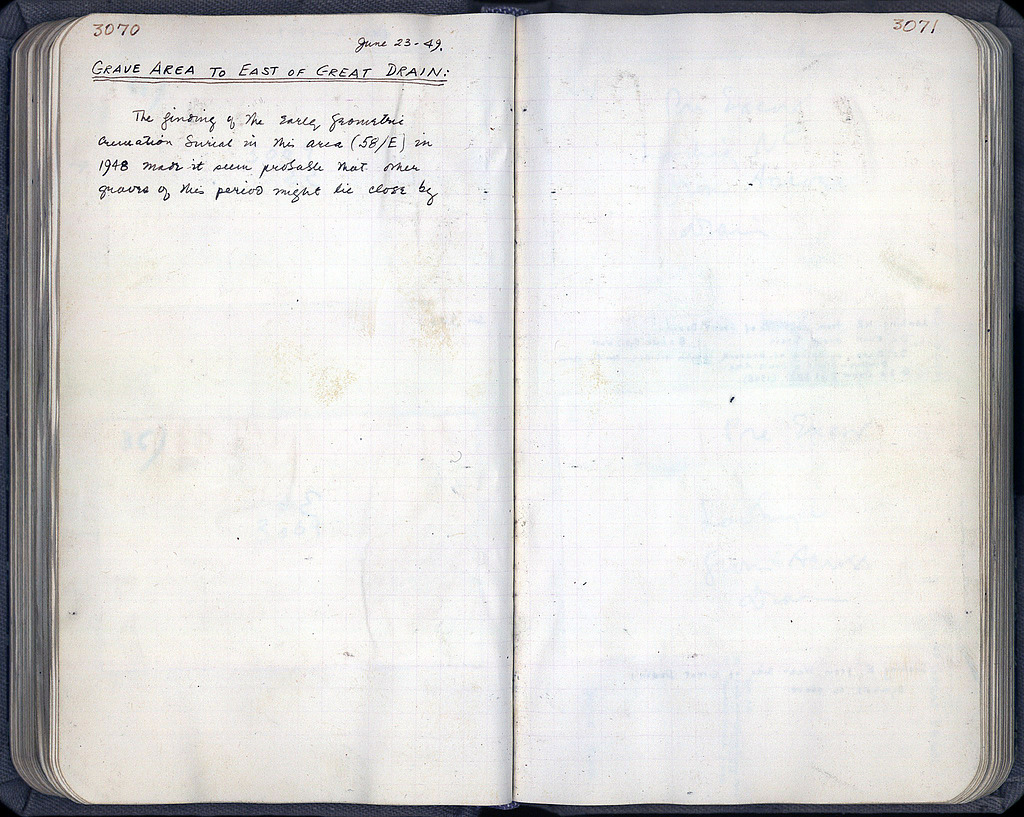 3070
June 23-49.
GRAVE AREA TO EAST OF GREAT DRAIN:
The finding of the Early Geometric
cremation burial in this area (58/E) in
1948 made it seem probable that other
graves of this period might lie close by
3071